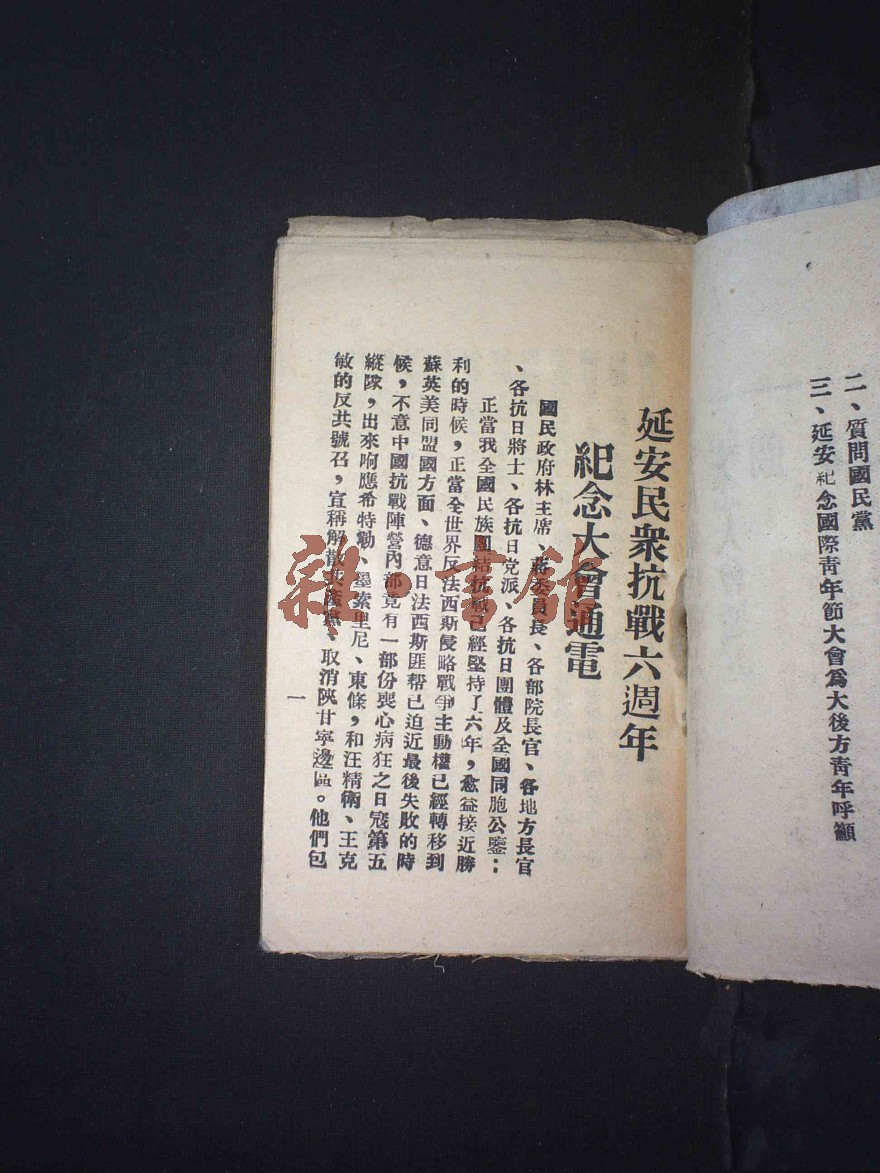 二、質問國民黨
三、延安紀念國際青年節大會爲大後方青年呼籲
延安民衆抗戰六週年
紀念大會通電
國民政府林主席、蔣委員長、各部院長官、各地方長官
、各抗日將士、各抗日党派、各抗日團體及全國同胞公鑒：
正當我全國民族團結抗戰已經堅持了六年，愈益接近勝
利的時候，正當全世界反法西斯侵略戰爭主動權已經轉移到
蘇英美同盟國方面、德意日法西斯匪帮已迫近最後失敗的時
候，不意中國抗戰陣營內部竟有一部份喪心病狂之日寇第五
縱隊，出來响應希特勒、墨索里尼、東條，和汪精衛、王克
敏的反共號召，宣稱解散共產黨、取消陝甘寧邊區。他們包
一
雜·書館